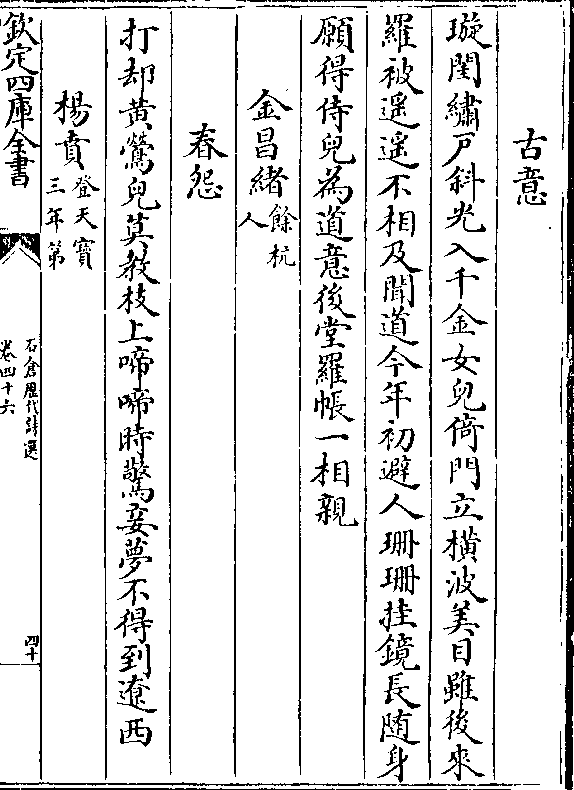 古意
璇閨繡戸斜光入千金女兒倚門立横波美目雖後來
羅被遥遥不相及聞道今年初避人珊珊挂鏡長随身
願得侍兒為道意後堂羅帳一相親
金昌緒餘杭人
春怨
打却黄鶯兒莫教枝上啼啼時驚妾夢不得到遼西
楊賁登天寶三年第
欽定四庫全書
石倉歴代詩選
卷四十六
四十